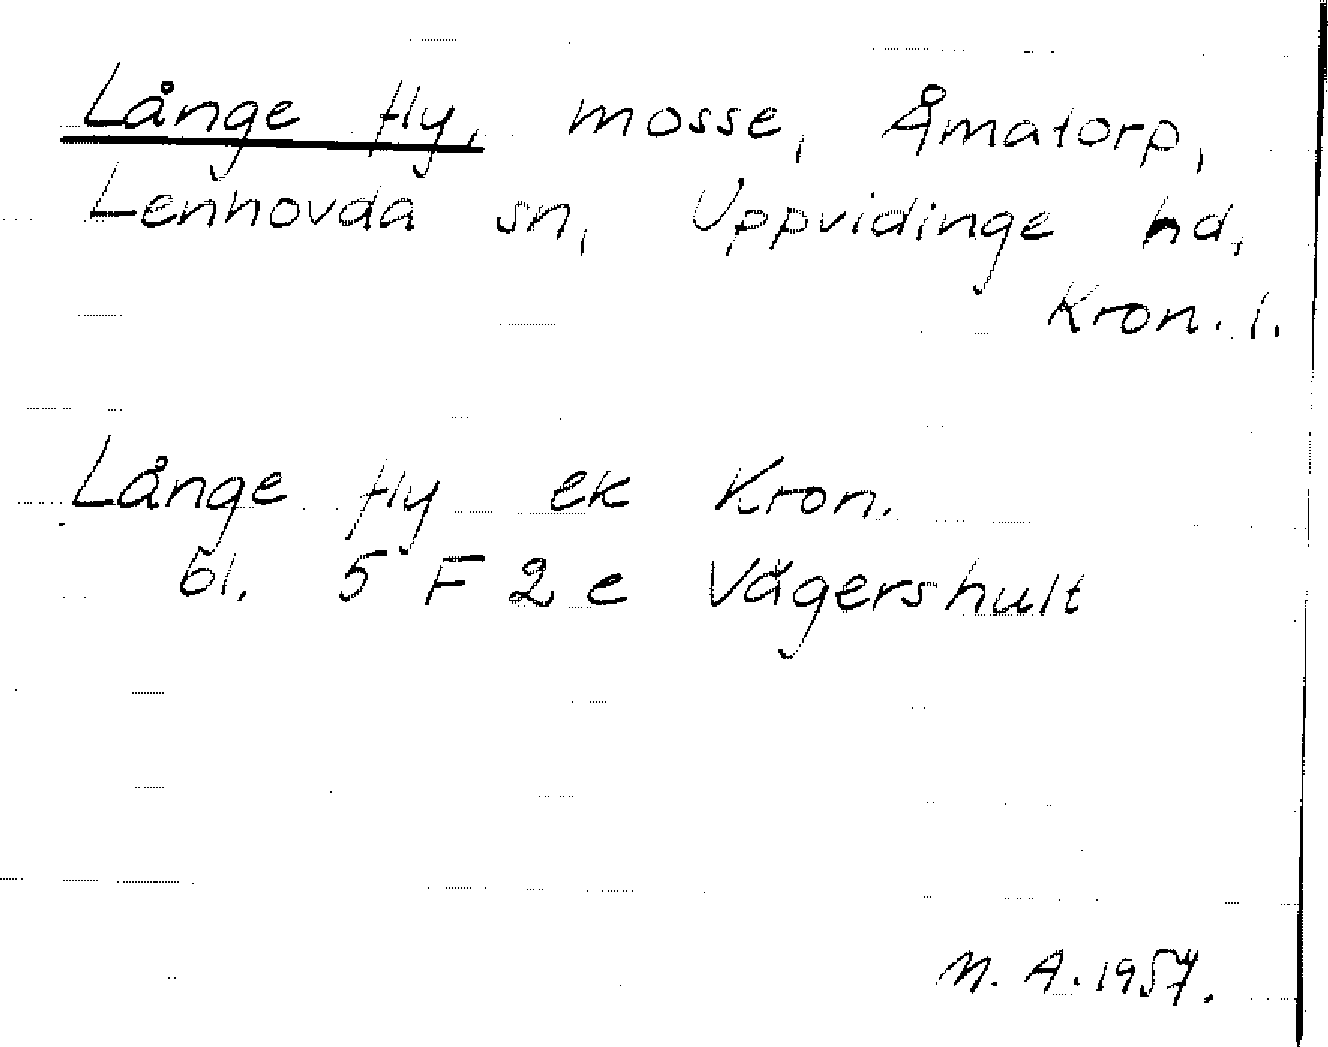 Långe fly, mosse, Åmatorp,
Lenhovda sn, Uppvidinge hd,
Kron. l.
Långe fly ek Kron.
bl. 5 F 2 e Vägershult
M. A. 1957.